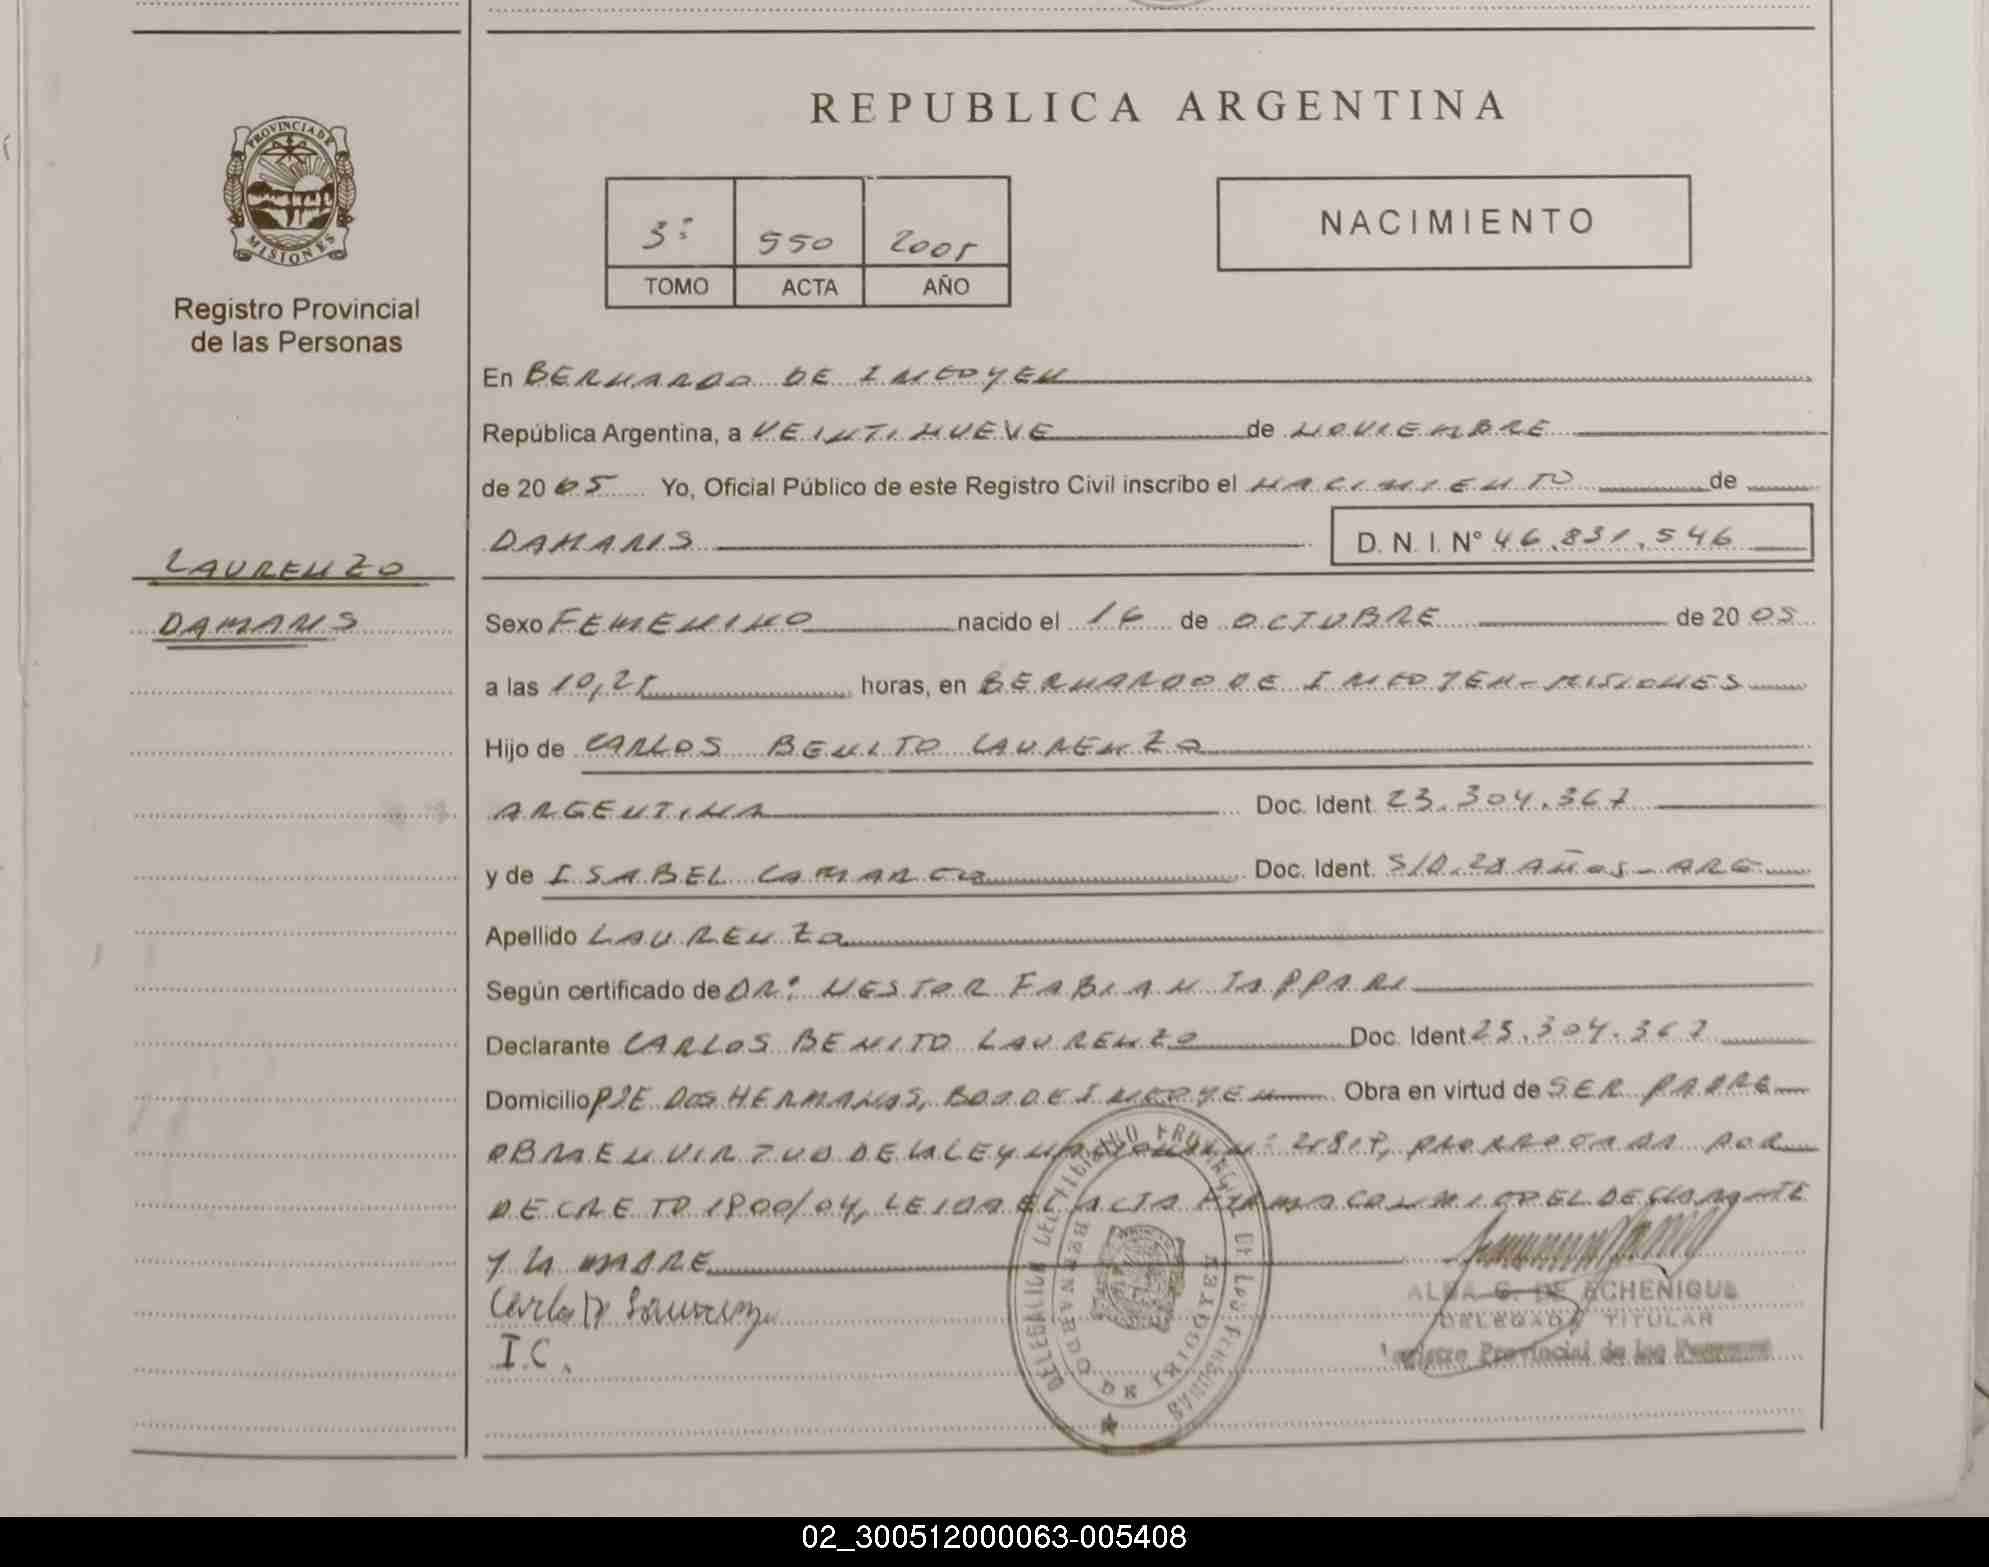 REPUBLICA ARGENTINA
PROVINCIA DE
MISIONES
Registro Provincial
de las Personas
3º 550 2005
TOMO ACTA AÑO
NACIMIENTO
En BERNARDO DE IRIGOYEN
República Argentina, a VEINTINUEVE de NOVIEMBRE
de 2005 Yo, Oficial Público de este Registro Civil inscribo el NACIMIENTO de
DAMARIS D. N. I. Nº 46.831.546
LAURENZO
DAMARIS
Sexo FEMENINO nacido el 16 de OCTUBRE de 2005
a las 10,25 horas, en BERNARDO DE IRIGOYEN - MISIONES
Hijo de CARLOS BENITO LAURENZO
ARGENTINA Doc. Ident. 23.304.367
y de ISABEL CAMARGO Doc. Ident. S/D. 28 AÑOS - ARG
Apellido LAURENZO
Según certificado de DR. NESTOR FABIAN
Declarante CARLOS BENITO LAURENZO Doc. Ident 23.304.367
Domicilio PJE DOS HERMANAS, BDO DE IRIGOYEN Obra en virtud de SER PADRE
OBRA EN VIRTUD DE LA LEY NACIONAL Nº PRORROGADA POR
DECRETO 1800/04, LEIDA EL ACTA FIRMA CONMIGO EL DECLARANTE
Y LA MADRE
I.C.
DE LAS PERSONAS
BERNARDO DE IRIGOYEN
ALBA G. DE ECHENIQUE
DELEGADA TITULAR
Registro Provincial de las Personas
02_300512000063-005408